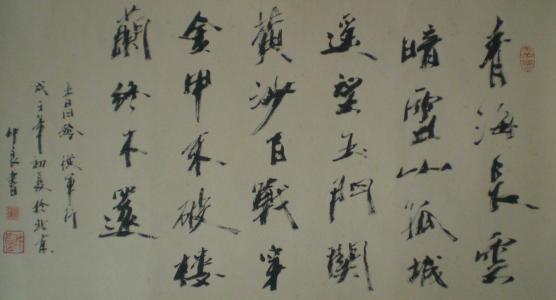 青海長雲
暗雪山孤城
遥望玉門關
黄沙百戰穿
金甲不破楼
蘭終不還
王昌龄 從軍行
年初夏於北京